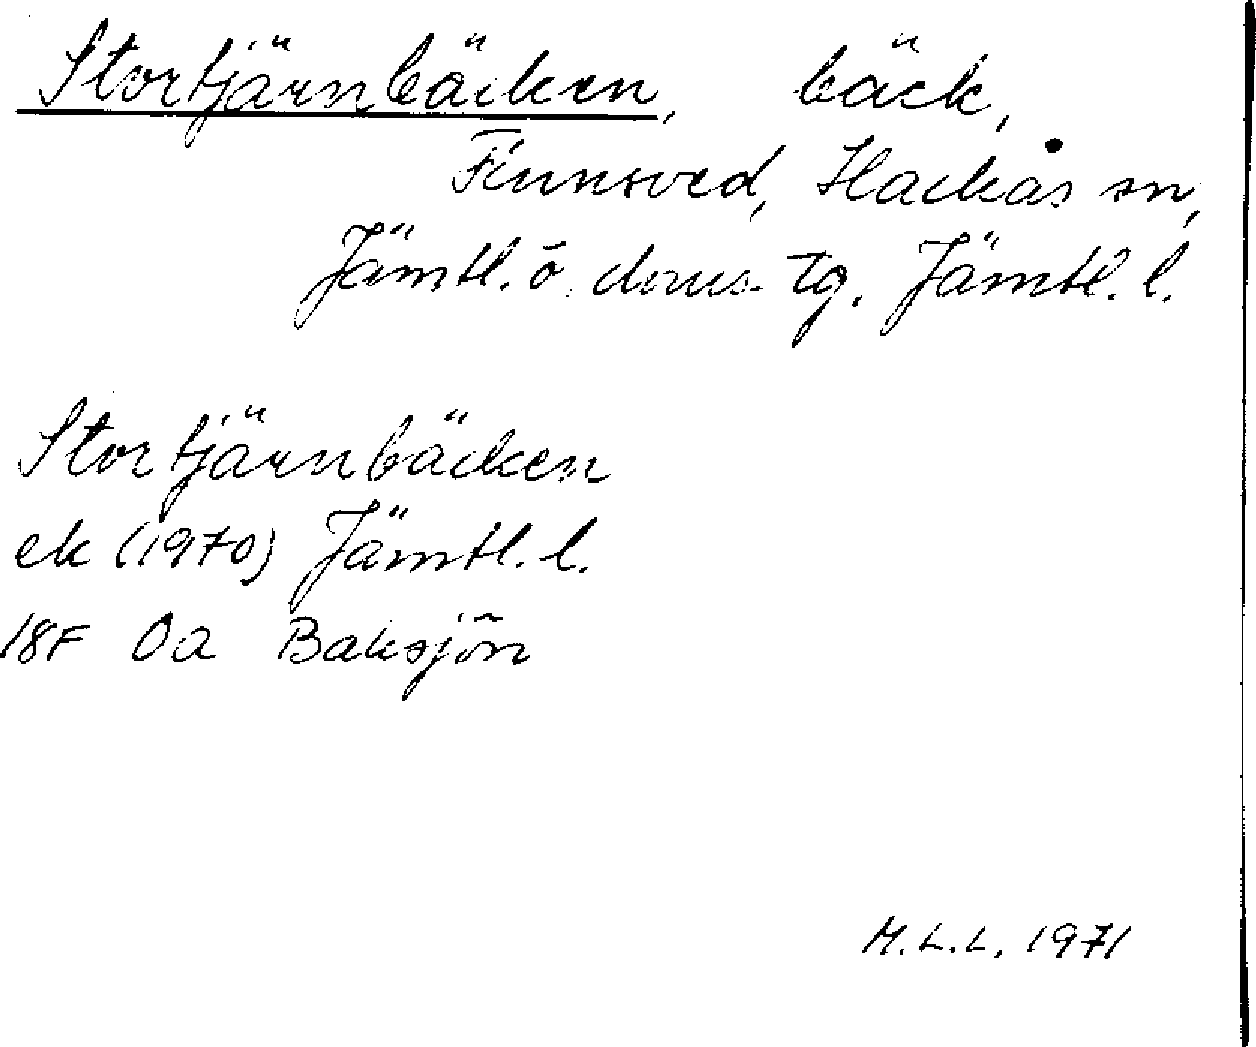 Stortjärnbäcken, bäck,
Finnsved, Hackås sn,
Jämtl. ö. doms. tg. Jämtl. l.
Stortjärnbäcken
ek (1970) Jämtl. l.
18F 0a Baksjön
M.L.L. 1971